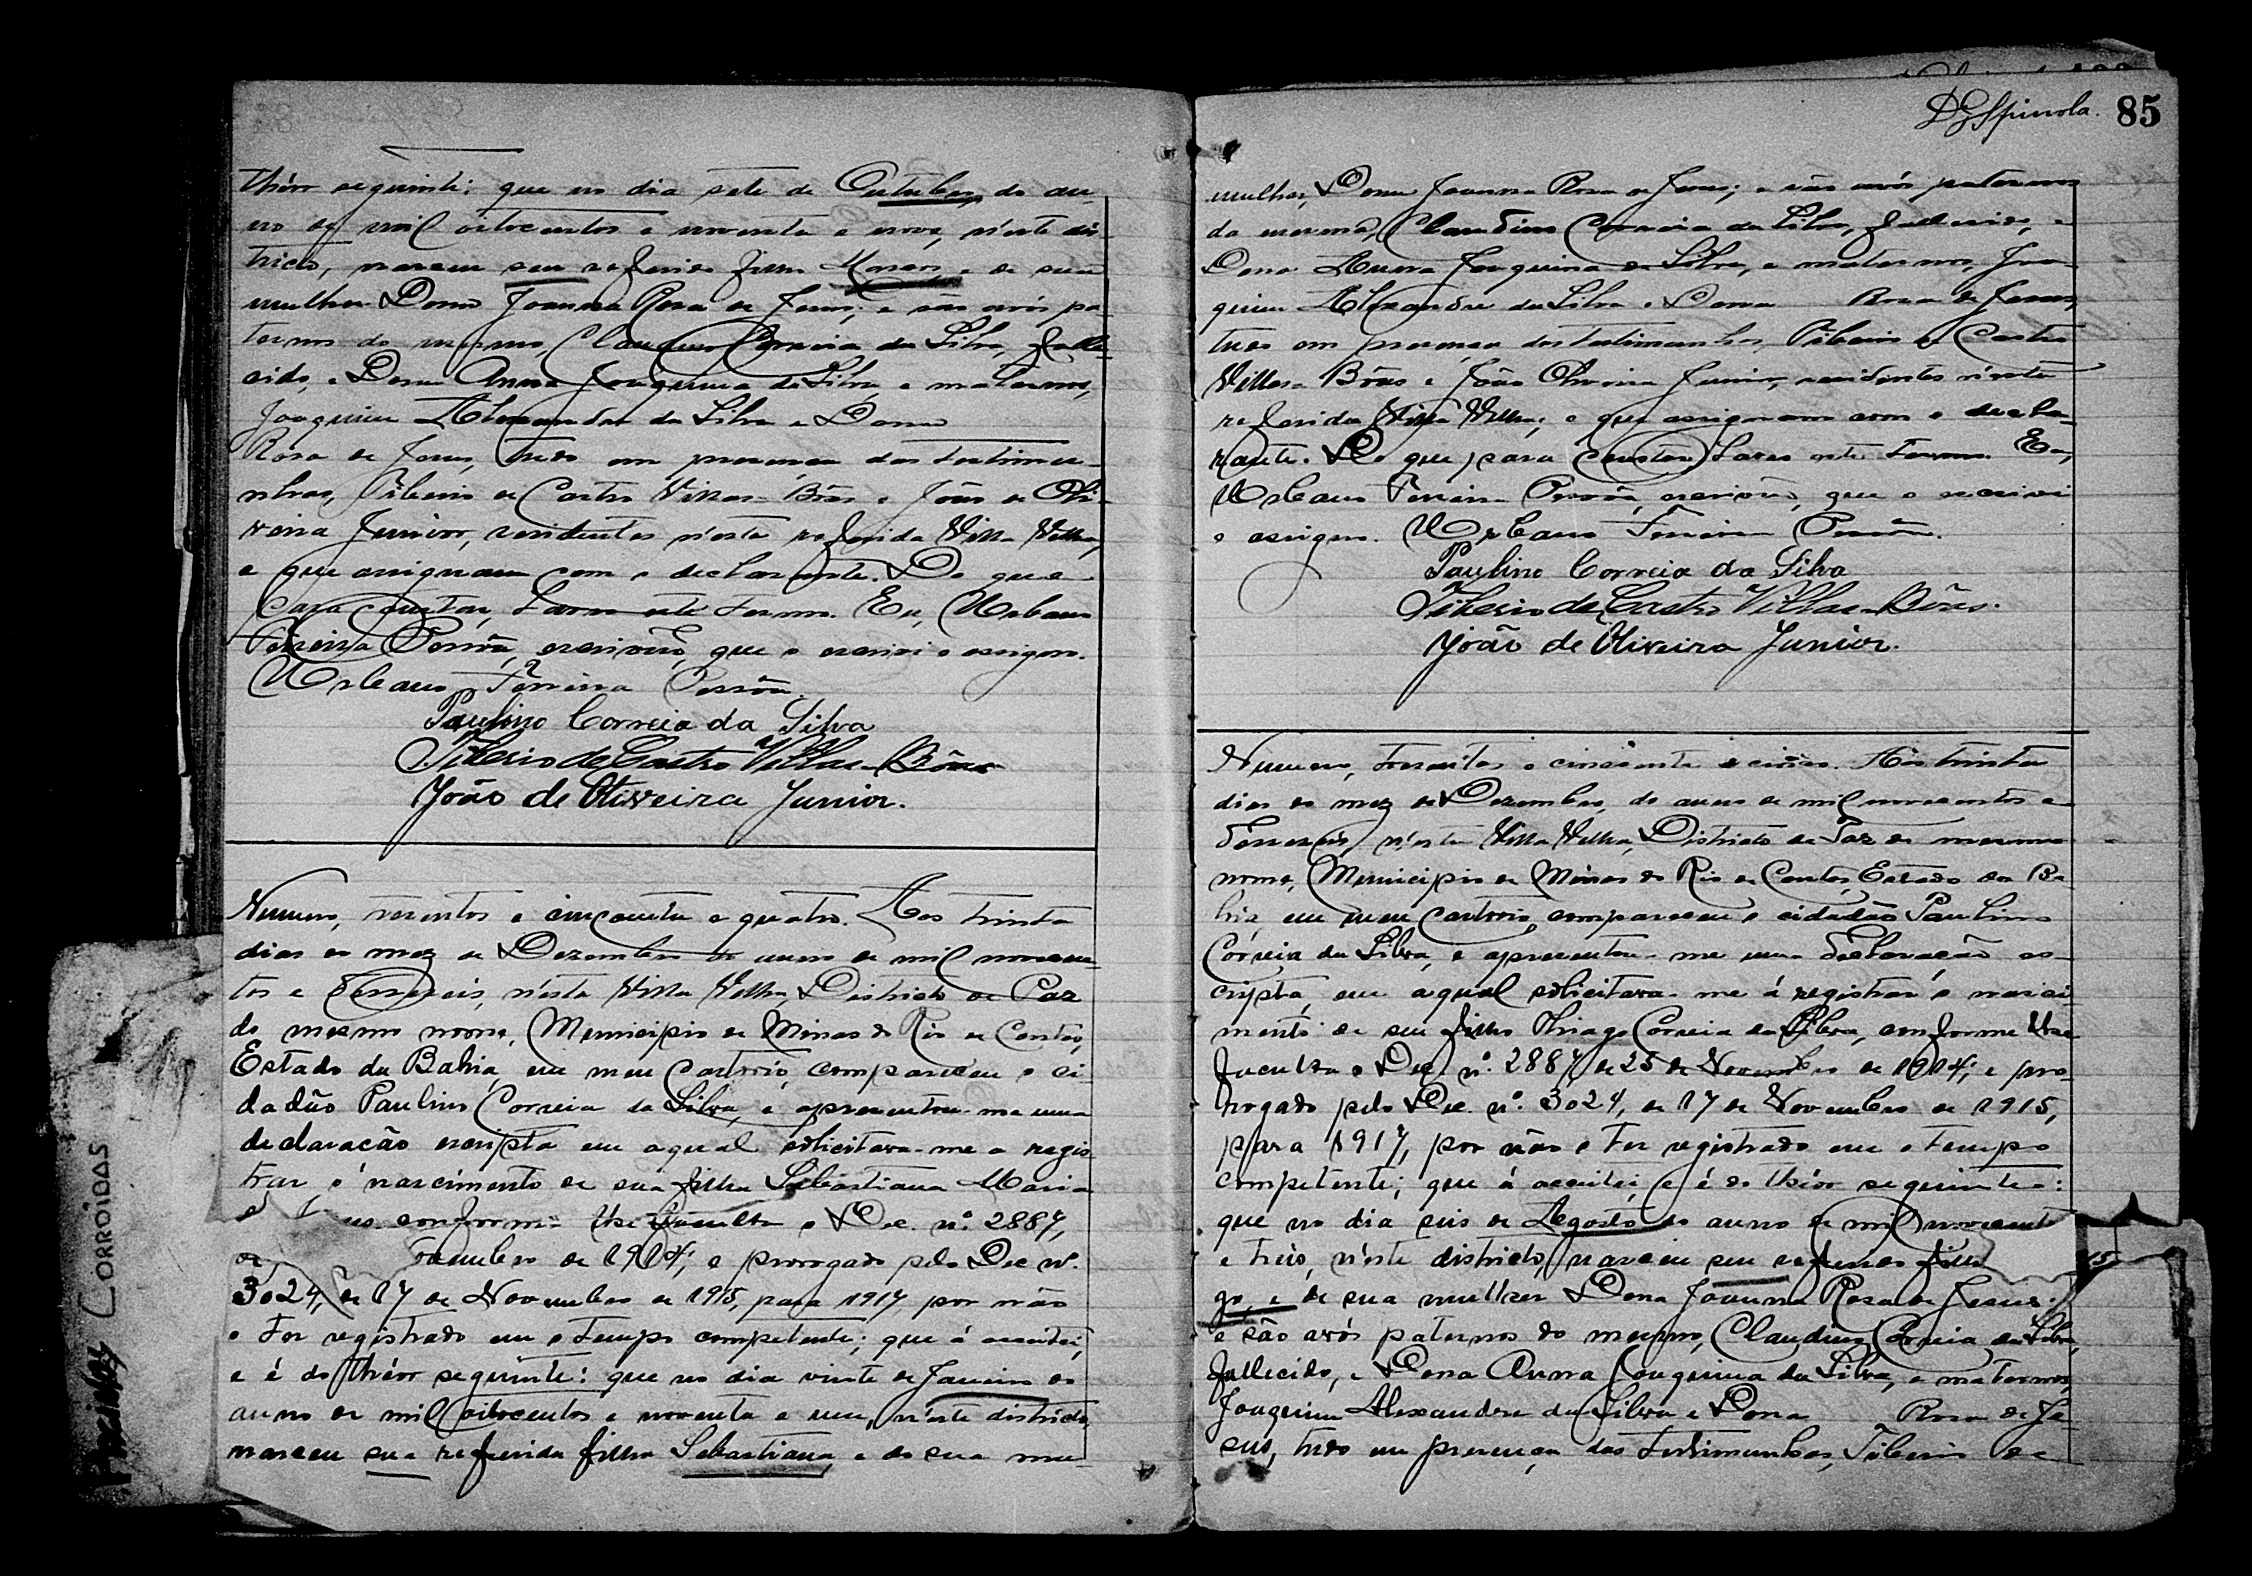 théor seguinte: que no dia sete de Outubro, do an-
no de mil oitocentos e noventa e nove, n'este dis-
tricto, nasceu seu referido filho e de sua
mulher Dona Joanna Rosa de Jesus; e são avós pa-
ternos do mesmo, Claudino Correia da Silva, falle-
cido, e Dona Anna Joaquina da Silva, e maternos,
Joaquim Alexandre da Silva e Dona
Rosa de Jesus, tudo em presença das testimu-
nhas, Tiberio de Castro Villas-Bôas e João de Oli-
veira Junior, residentes n'esta referida Villa Velha,
e que assignam com o declarante. Do que
para constar, lavro este termo. Eu, Urbano
Ferreira, escrivão, que o escrevi e assigno.
Urbano Ferreira
Paulino Correia da Silva
Tiberio de Castro Villas-Bôas
João de Oliveira Junior.
Numero, tresentos e cincoenta e quatro. Aos trinta
dias do mez de Dezembro do anno de mil novecen-
tos e desseseis, n'esta Villa Velha, Districto de Paz
do mesmo nome, Municipio de Minas do Rio de Contas,
Estado da Bahia, em meu Cartorio, compareceu o ci-
dadão Paulino Correia da Silva, e apresentou-me uma
declaração escripta em a qual solicitava-me a regis-
trar o nascimento de sua filha Sebastiana Maria
conforme lhe faculta o Dec. nº. 2887,
de vembro de 1914; e prorogado pelo Dec nº.
3024, de 17 de Novembro de 1915, para 1917 por não
o ter registrado em o tempo competente; que á acceitei,
e é do théor seguinte: que no dia vinte de Janeiro do
anno de mil oitocentos e noventa e um, n'este districto,
nasceu sua referida filha Sebastiana, e de sua mu-
D. G. Spinola. 85
mulher, Dona Joanna Rosa de Jesus; e são avós paternos
da mesma, Claudino Correia da Silva, fallecido, e
Dona Anna Joaquina da Silva, e maternos, Joa-
quim Alexandre da Silva e Dona Rosa de Jesus,
tudo em presença das testimunhas, Tiberio de Castro
Villas-Bôas e João Oliveira Junior, residentes n'esta
referida Villa Velha; e que assignam com o decla-
rante. Do que para constar, lavro este termo. Eu,
Urbano Ferreira, escrivão, que o escrevi
e assigno. Urbano Ferreira
Paulino Correia da Silva
Tiberio de Castro Villas-Bôas.
João de Oliveira Junior.
Numero, tresentos e cincoenta e cinco. Aos trinta
dias do mez de Dezembro, do anno de mil novecentos e
desseseis, n'esta Villa Velha, Districto de Paz do mesmo
nome, Municipio de Minas do Rio de Contas, Estado da Ba-
hia, em meu Cartorio, compareceu o cidadão Paulino
Correia da Silva, e apresentou-me uma declaração es-
cripta, em a qual solicitava-me á registrar o nasci-
mento de seu filho Thiago Correia da Silva, conforme lhe
faculta o Dec. nº. 2887 de 25 de Novembro de 1914; e pro-
rogado pelo Dec. nº. 3024, de 17 de Novembro de 1915,
para 1917, por não o ter registrado em o tempo
competente; que á acceitei, e é do théor seguinte:
que no dia seis de Agosto do anno de mil novecent
e treis, n'este districto, nasceu seu referido filho
go, e de sua mulher Dona Joanna Rosa de Jesus;
e são avós paternos do mesmo, Claudino Correia da Silva,
fallecido, e Dona Anna Joaquina da Silva, e maternos,
Joaquim Alexandre da Silva e Dona Rosa de Je-
sus, tudo em presença das testimunhas, Tiberio de
CORROIDAS